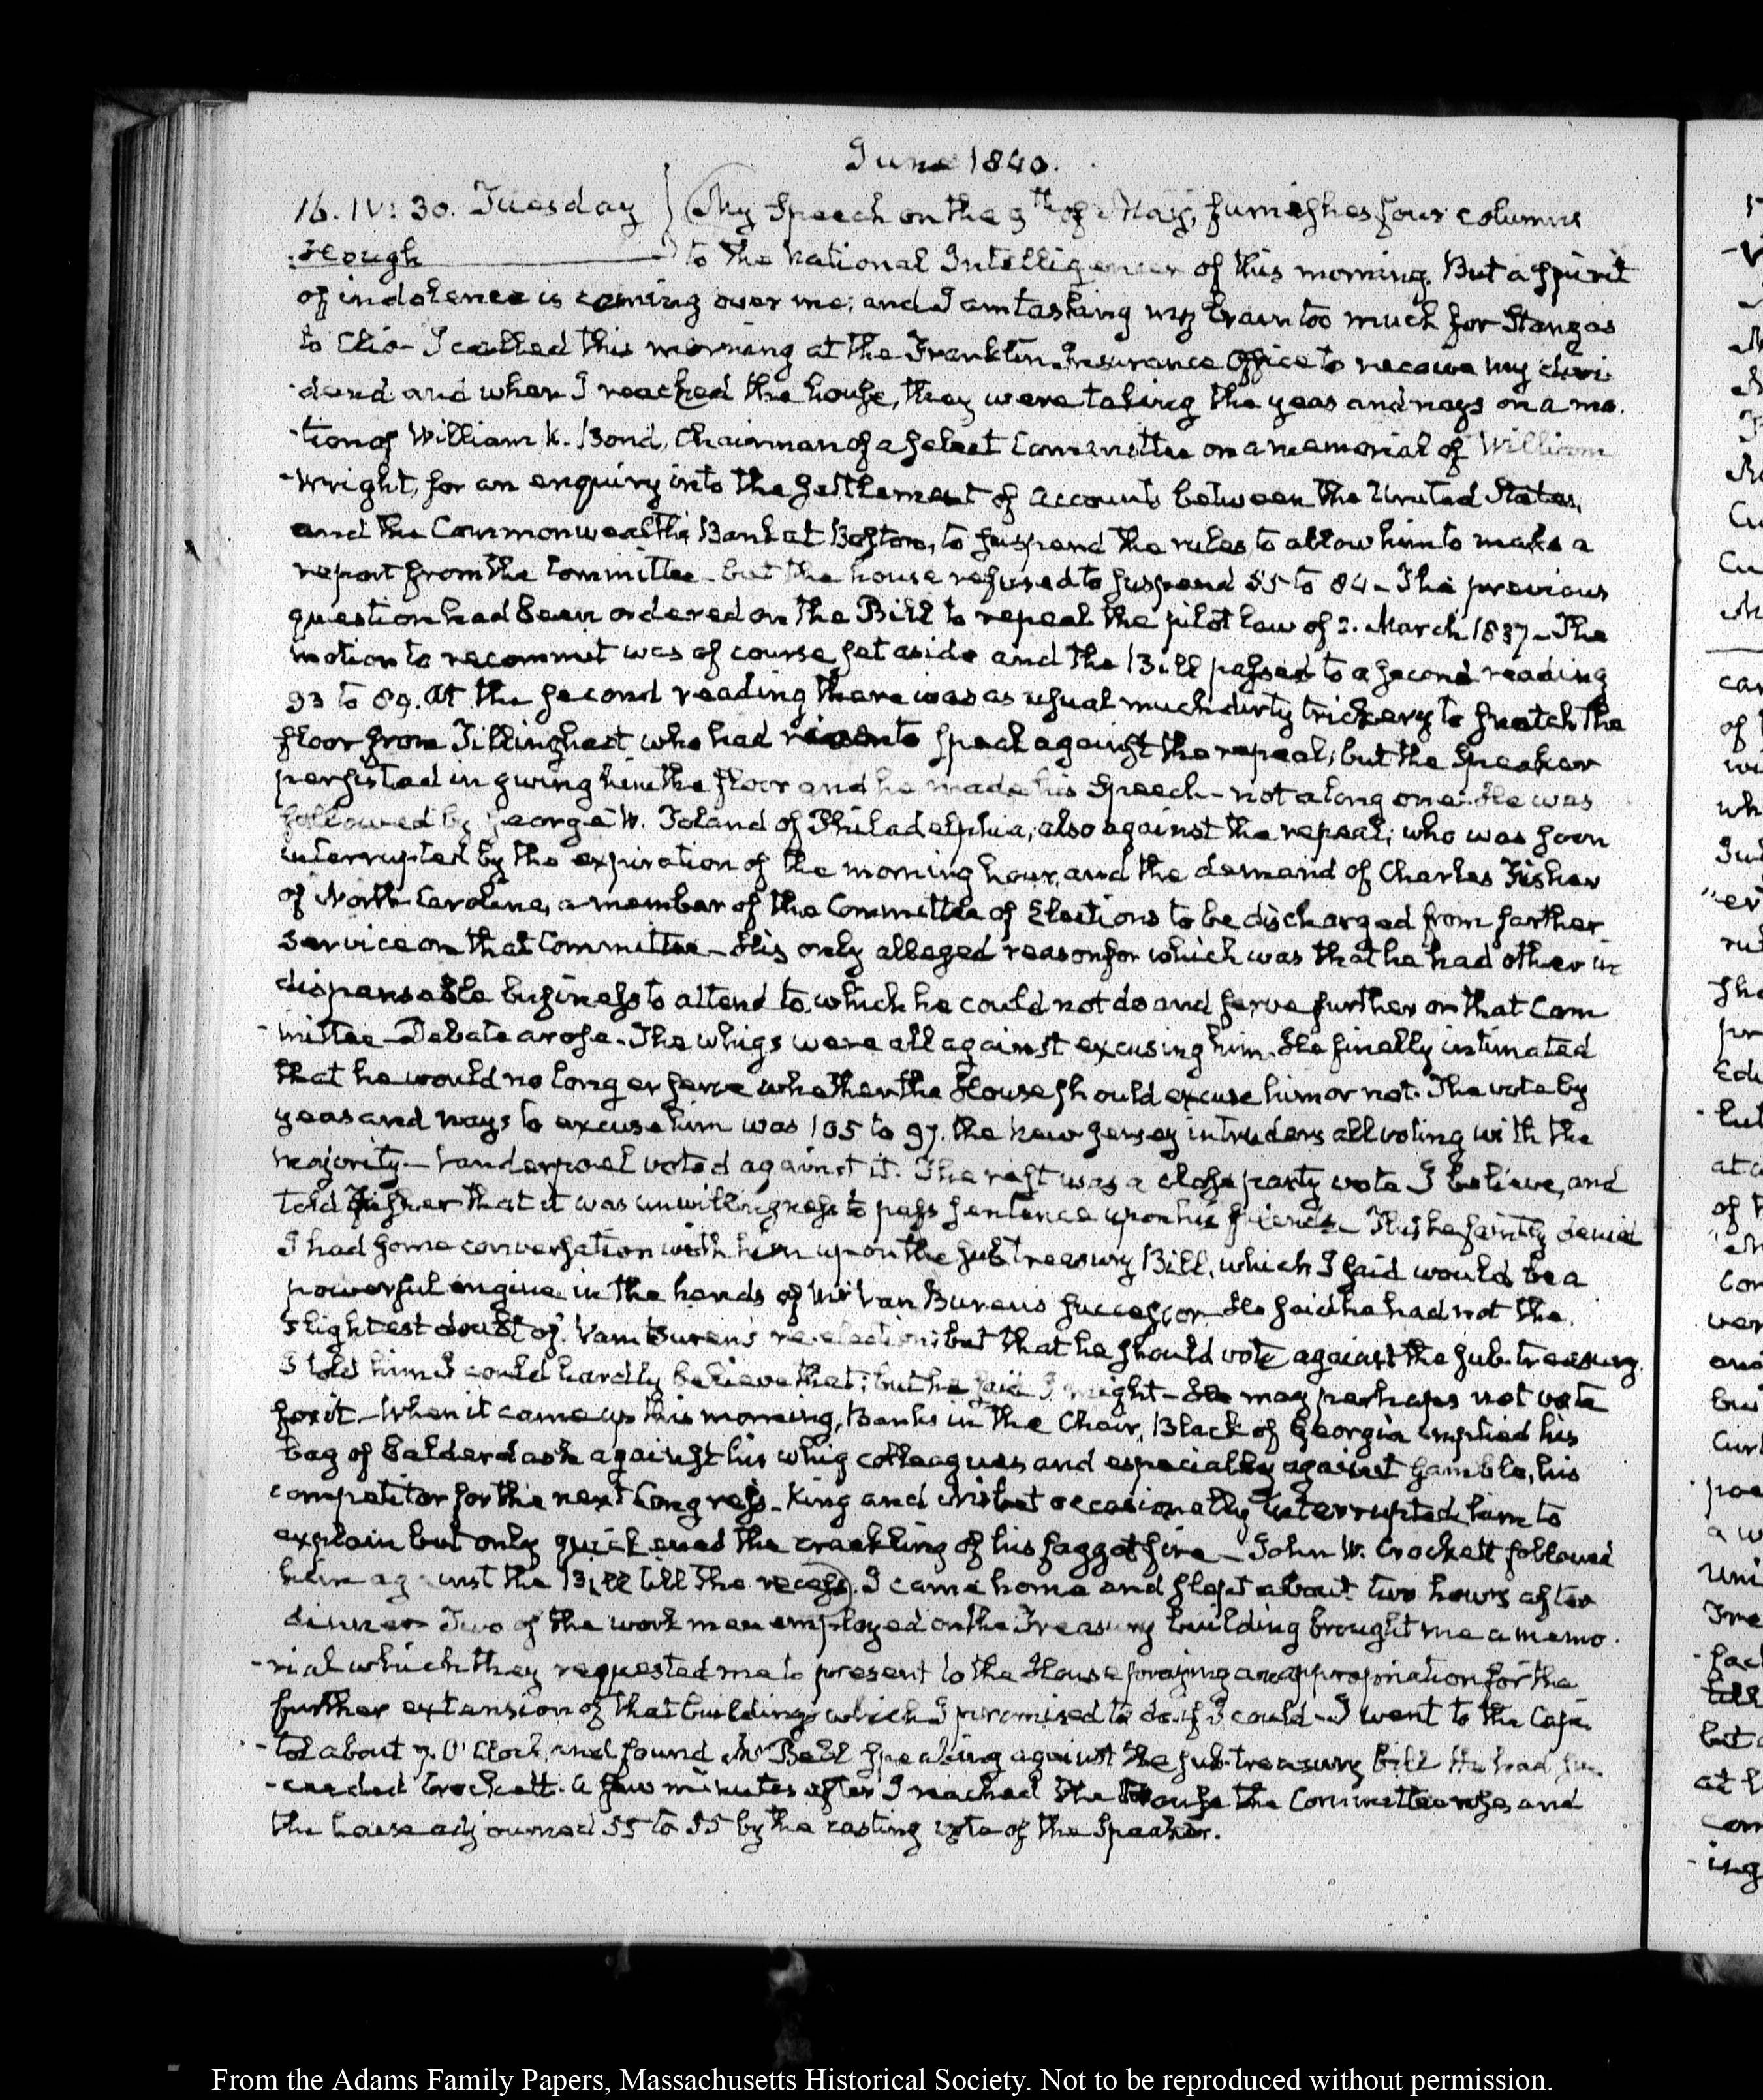 June 1840.
16. IV: 30. Tuesday
Hough
My Speech on the 9th of May, furnishes four columns
to the National Intelligencer of this morning. But a spirit
of indolence is coming over me; and I am tasking my brain too much for Stanzas
to Clio - I called this morning at the Franklin Insurance Office to receive my divi-
-dend and when I reached the house, they were taking the yeas and nays on a mo-
-tion of William K. Bond, Chairman of a select Committee on a memorial of William
-Wright, for an enquiry into the settlement of accounts between the United States,
and the Commonwealth Bank at Boston, to suspend the rules to allow him to make a
report from the Committee - but the house refused to suspend 55 to 84 - The previous
question had been ordered on the Bill to repeal the pilot law of 2. March 1837 - The
motion to recommit was of course set aside and the Bill passed to a second reading
93 to 89. At the second reading there was as usual much dirty trickery to snatch the
floor from Tillinghast who had risen to speak against the repeal; but the Speaker
persisted in giving him the floor and he made his Speech - not a long one. He was
followed by George W. Toland of Philadelphia, also against the repeal; who was soon
interrupted by the expiration of the morning hour, and the demand of Charles Fisher
of North-Carolina, a member of the Committee of Elections to be discharged from farther
service on that Committee - His only alleged reason for which was that he had other in
dispensable business to attend to, which he could not do and serve further on that Com
-mittee - Debate arose. The whigs were all against excusing him. He finally intimated
that he would no longer serve whether the House should excuse him or not. The vote by
yeas and nays to excuse him was 105 to 97. the New Jersey intruders all voting with the
majority - Vanderpoel voted against it. The rest was a close party vote I believe, and
told Fisher that it was unwillingness to pass sentence upon his friends - This he faintly denied
I had some conversation with him upon the sub treasury Bill, which I said would be a
powerful engine in the hands of Mr Van Buren's successor - He said he had not the
slightest doubt of Van Buren's re-election; but that he should vote against the sub-treasury.
I told him I could hardly believe that; but he said I might - He may perhaps not vote
for it - When it came up this morning, Banks in the Chair, Black of Georgia emptied his
bag of balderdash against his whig colleagues and especially against Gamble, his
competitor for the next Congress - King and Nisbet occasionally interrupted him to
explain but only quickened the crackling of his faggot fire - John W. Crockett followed
him against the Bill till the recess. I came home and slept about two hours after
dinner Two of the work men employed on the Treasury building brought me a memo-
-rial which they requested me to present to the House praying an appropriation for the
further extension of that building; which I promised to do if I could - I went to the Capi-
-tol about 7. O'Clock, and found Mr Bell speaking against the sub-treasury bill He had suc-
-ceeded Crockett. A few minutes after I reached the House the Committee rose and
the house adjourned 55 to 55 by the casting vote of the Speaker.
From the Adams Family Papers, Massachusetts Historical Society. Not to be reproduced without permission.